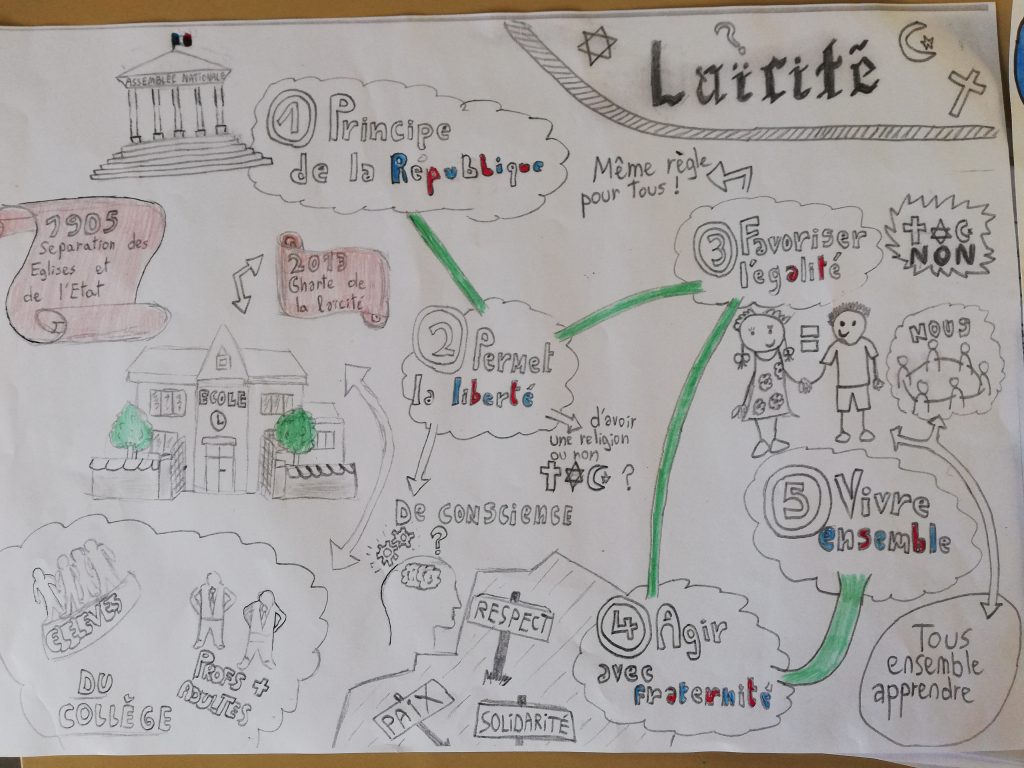 Laïcité
?
ASSEMBLÉE NATIONALE
1 Principe
de la République
1905
Séparation des
Eglises et
de l'Etat
2013
Charte de
la laïcité
ECOLE
2 Permet
la liberté
d'avoir
une religion
ou non
?
DE CONSCIENCE
?
Même règle
pour tous !
3 Favoriser
l'égalité
NON
=
NOUS
4 Agir
avec
fraternité
RESPECT
PAIX
SOLIDARITÉ
5 Vivre
ensemble
Tous
ensemble
apprendre
ELEVES
PROFS +
ADULTES
DU
COLLÈGE